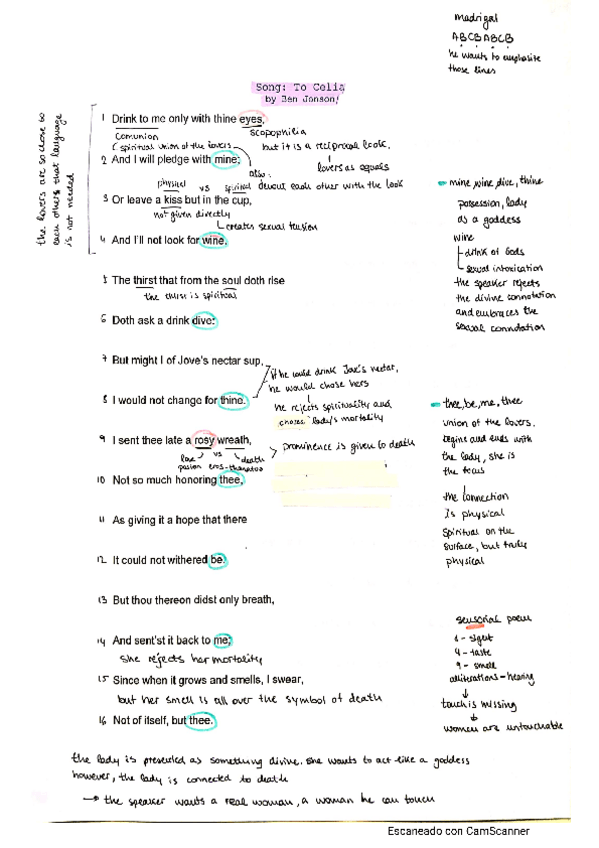 madrigal
ABCBABCB
he wants to emphasise
those lines
Song: To Celia
by Ben Jonson/
the lovers are so close to
each others that language
is not needed
1 Drink to me only with thine eyes,
Comunion
scopophilia
(spiritual union of the lovers
but it is a reciprocal look,
2 And I will pledge with mine;
lovers as equals
also:
devout each other with the look
physical vs spiritual
3 Or leave a kiss but in the cup,
not given directly
creates sexual tension
4 And I'll not look for wine.
mine, wine, dive, thine
possession, lady
as a goddess
wine
drink of Gods
sexual intoxication
the speaker rejects
the divine connotation
and embraces the
sexual connotation
5 The thirst that from the soul doth rise
the thirst is spiritual
6 Doth ask a drink dive:
7 But might I of Jove's nectar sup,
if he could drink Jove's nectar,
he would chose hers
8 I would not change for thine.
he rejects spirituality and
choses lady's mortality
9 I sent thee late a rosy wreath,
love vs death
pasion eros-thanatos
prominence is given to death
10 Not so much honoring thee,
thee, be, me, thee
union of the lovers.
begins and ends with
the lady, she is
the focus
the connection
is physical
spiritual on the
surface, but truly
physical
11 As giving it a hope that there
12 It could not withered be.
13 But thou thereon didst only breath,
14 And sent'st it back to me;
she rejects her mortality
15 Since when it grows and smells, I swear,
but her smell is all over the symbol of death
16 Not of itself, but thee.
sensorial poem
1 - sight
4 - taste
9 - smell
alliterations - hearing
touch is missing
women are untouchable
the lady is presented as something divine. She wants to act like a goddess
however, the lady is connected to death
the speaker wants a real woman, a woman he can touch
Escaneado con CamScanner